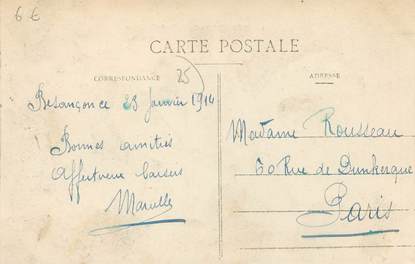 6 €
CARTE POSTALE
CORRESPONDANCE
25
ADRESSE
Besançon ce 23 Janvier 1914
Bonnes amitiés
Affectueux baisers
Marcelle
Madame Rousseau
60 Rue de Dunkerque
Paris